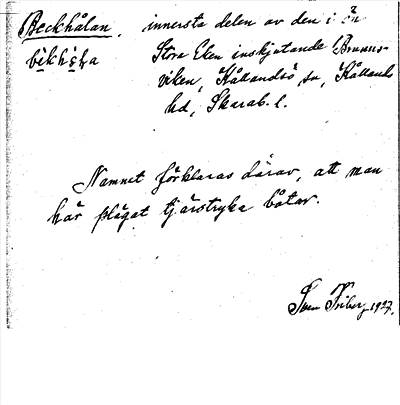 Beckhålan, innersta delen av den i ön
Stora Eken inskjutande Brunns-
viken, Kållandsö sn, Kållands
hd, Skarab. l.
Namnet förklaras därav, att man
här plägat tjärstryka båtar.
Sven Friberg 1927.